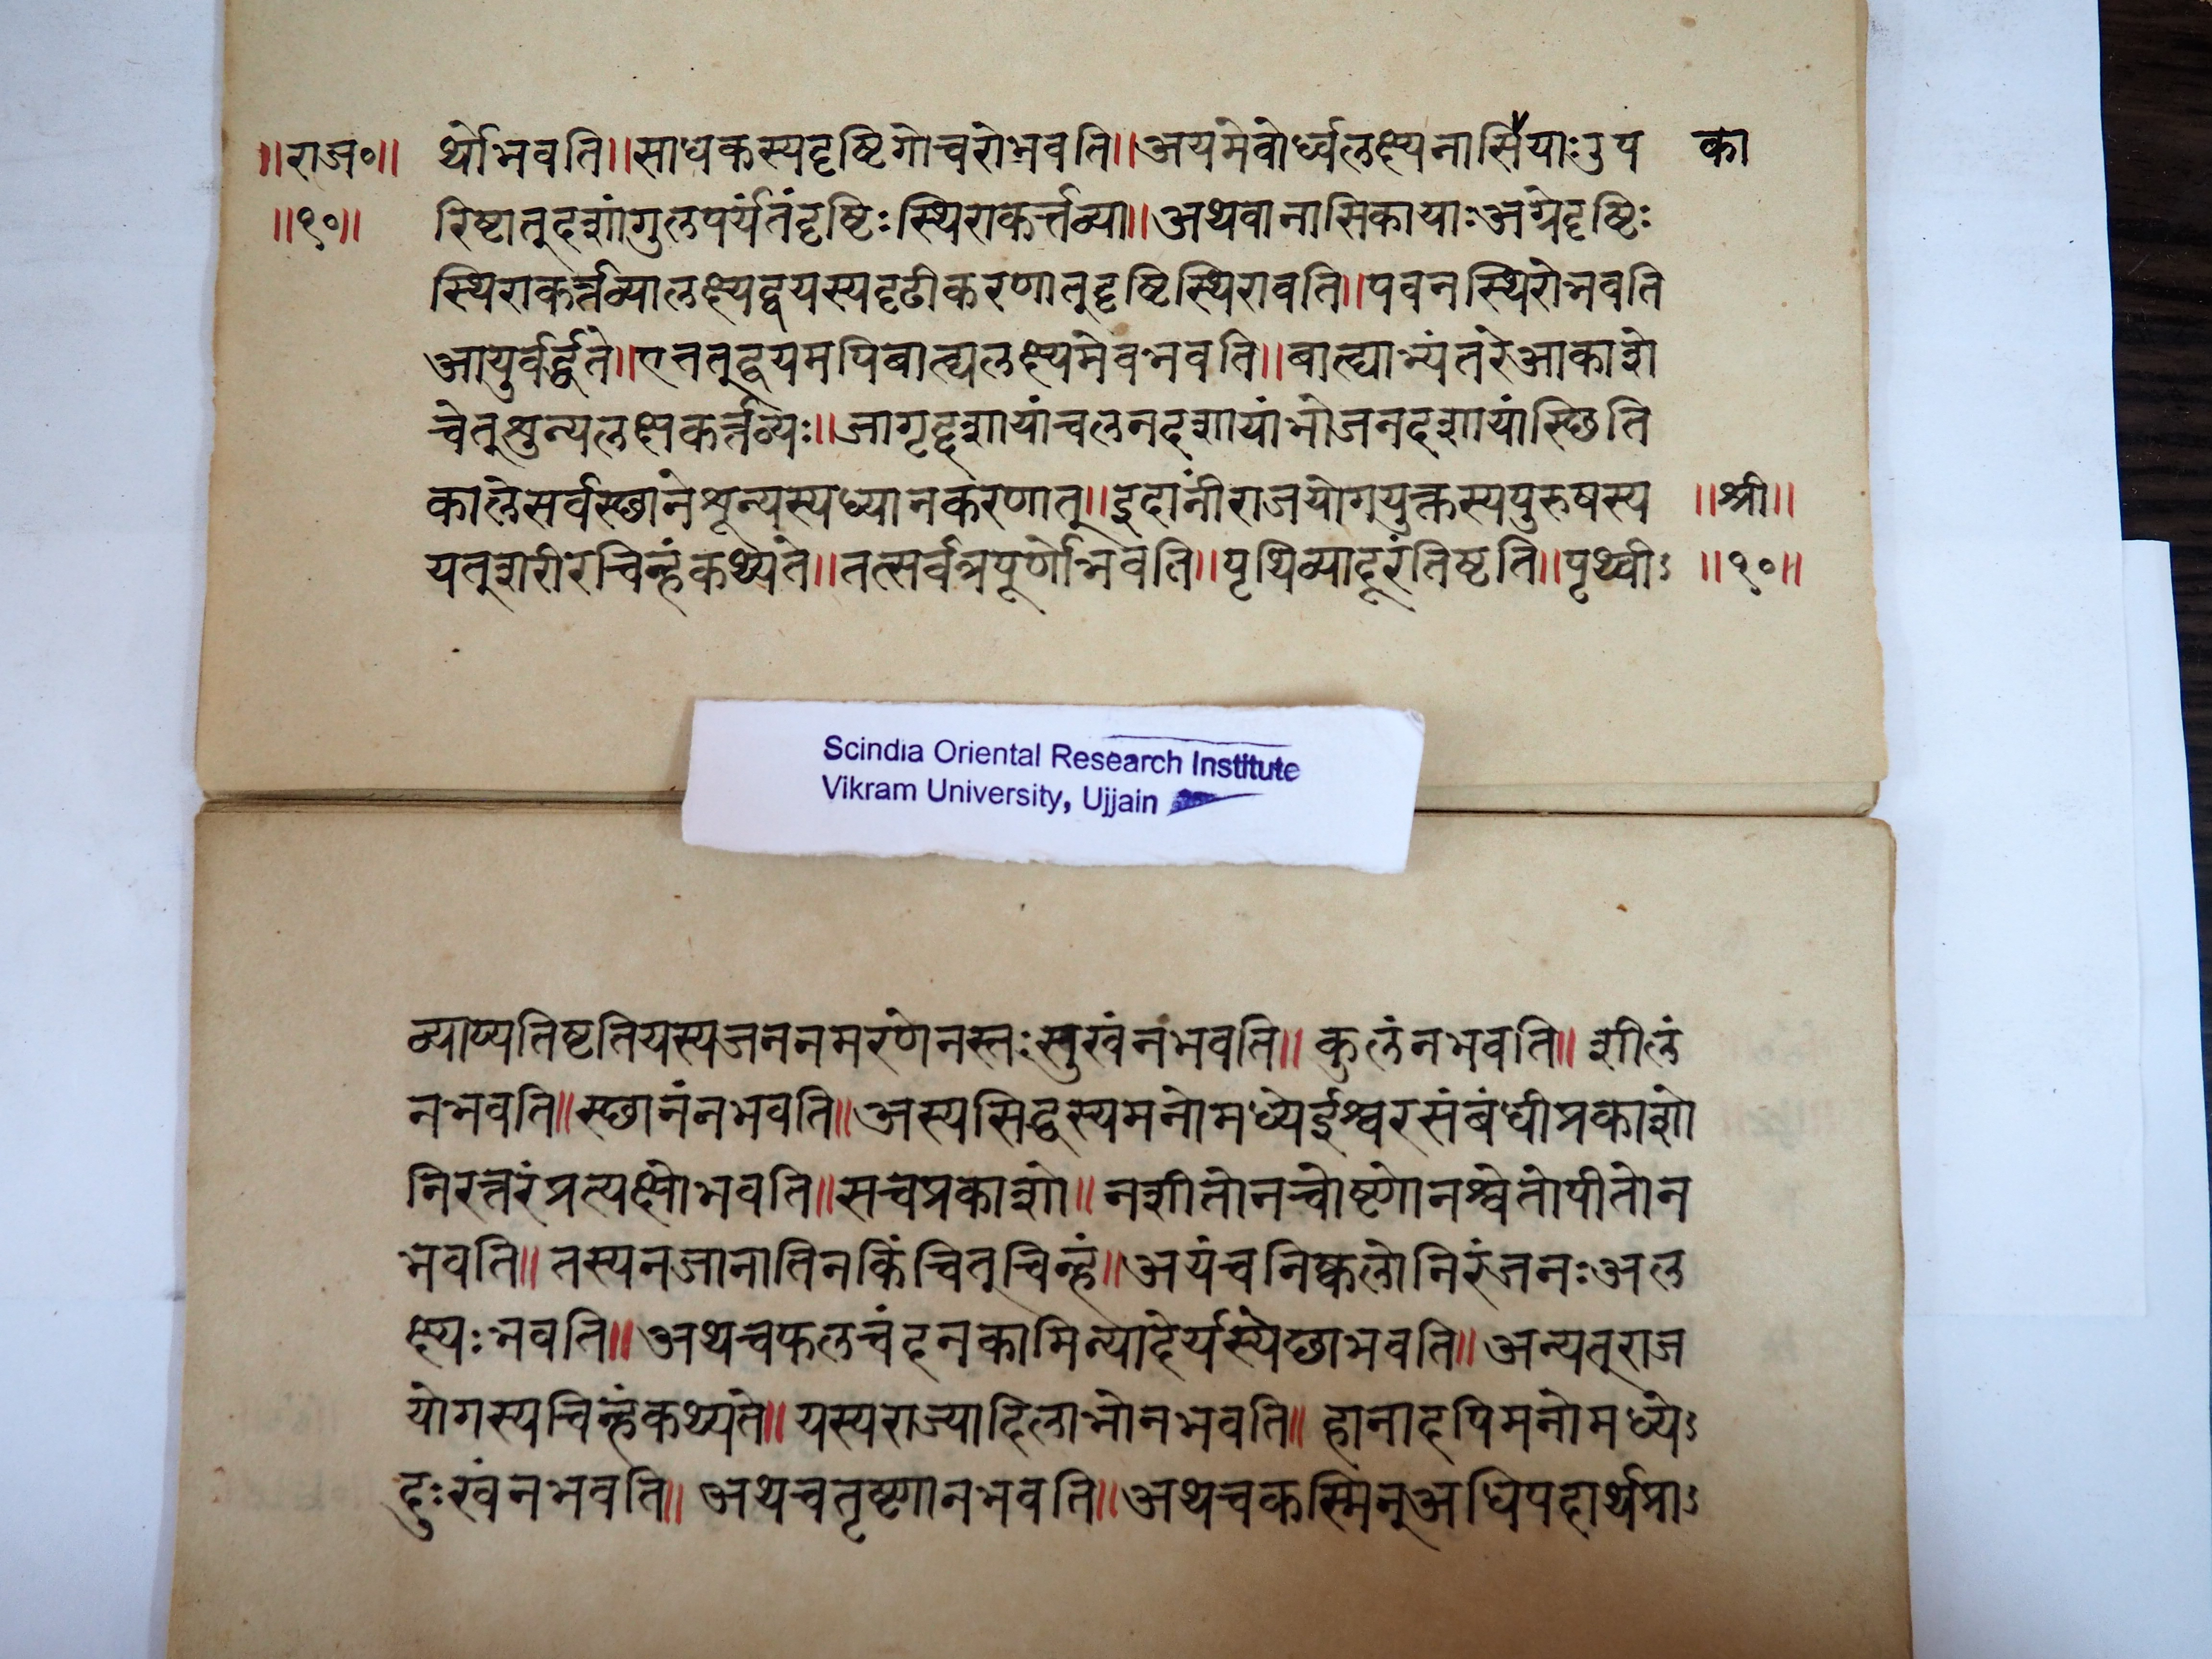 ॥राज०॥ र्थोभवति॥साधकस्यदृष्टिगोचरोभवति॥अयमेवोर्ध्वलक्ष्यनासियाःउप का
॥१०॥ रिष्टात्द्दशांगुलपर्यंतंदृष्टिःस्थिराकर्त्तव्या॥अथवानासिकायाःअग्रेदृष्टिः
स्थिराकर्त्तव्यालक्ष्यद्वयस्यदृढीकरणात्दृष्टिस्थिरावति॥पवनस्थिरोभवति
आयुर्वर्द्धते॥एतत्द्वयमपिबाल्यलक्ष्यमेवभवति॥बाल्याभ्यंतरेआकाशे
चेत्शुन्यलक्षकर्त्तव्यः॥जागृद्दशायांचलनदशायांभोजनदशायांस्छिति
कालेसर्वस्छानेशून्यस्यध्यानकरणात्॥इदानींराजयोगयुक्तस्यपुरुषस्य ॥श्री॥
यत्शरीरचिन्हंकथ्यते॥तत्सर्वत्रपूर्णोभवति॥पृथिव्यादूरंतिष्टति॥पृथ्वीऽ ॥१०॥
Scindia Oriental Research Institute
Vikram University, Ujjain
व्याप्यतिष्टतियस्यजननमरणेनस्तःसुखंनभवति॥ कुलंनभवति॥ शीलं
नभवति॥स्छानंनभवति॥अस्यसिद्धस्यमनोमध्येईश्वरसंबंधीप्रकाशो
निरन्तरंप्रत्यक्षोभवति॥सचप्रकाशो॥नशीतोनचोष्णोनश्वेतोपीतोन
भवति॥ तस्यनजानातिनकिंचित्चिन्हं॥अयंचनिष्कलोनिरंजनःअल
क्ष्यःभवति॥ अथचफलचंदनकामिन्यादेर्यस्येछाभवति॥ अन्यत्राज
योगस्यचिन्हंकथ्यते॥ यस्यराज्यादिलाभोनभवति॥ हानादपिमनोमध्येऽ
दुःखंनभवति॥ अथचतृष्णानभवति॥अथचकस्मिन्अधिपदार्थप्राऽ